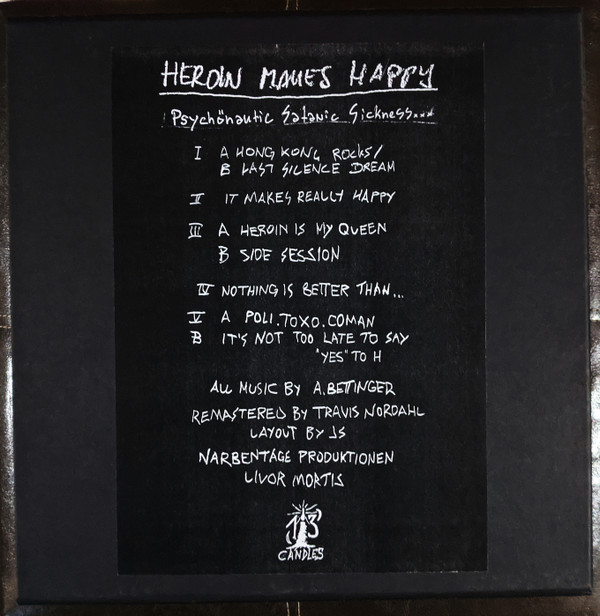 HEROIN MAKES HAPPY
Psychönautic Satanic Sickness...
I A HONG KONG ROCKS/
B LAST SILENCE DREAM
II IT MAKES REALLY HAPPY
III A HEROIN IS MY QUEEN
B SIDE SESSION
IV NOTHING IS BETTER THAN...
V A POLI.TOXO.COMAN
B IT'S NOT TOO LATE TO SAY
"YES" TO H
ALL MUSIC BY A.BETTINGER
REMASTERED BY TRAVIS NORDAHL
LAYOUT BY JS
NARBENTAGE PRODUKTIONEN
LIVOR MORTIS
13
CANDLES